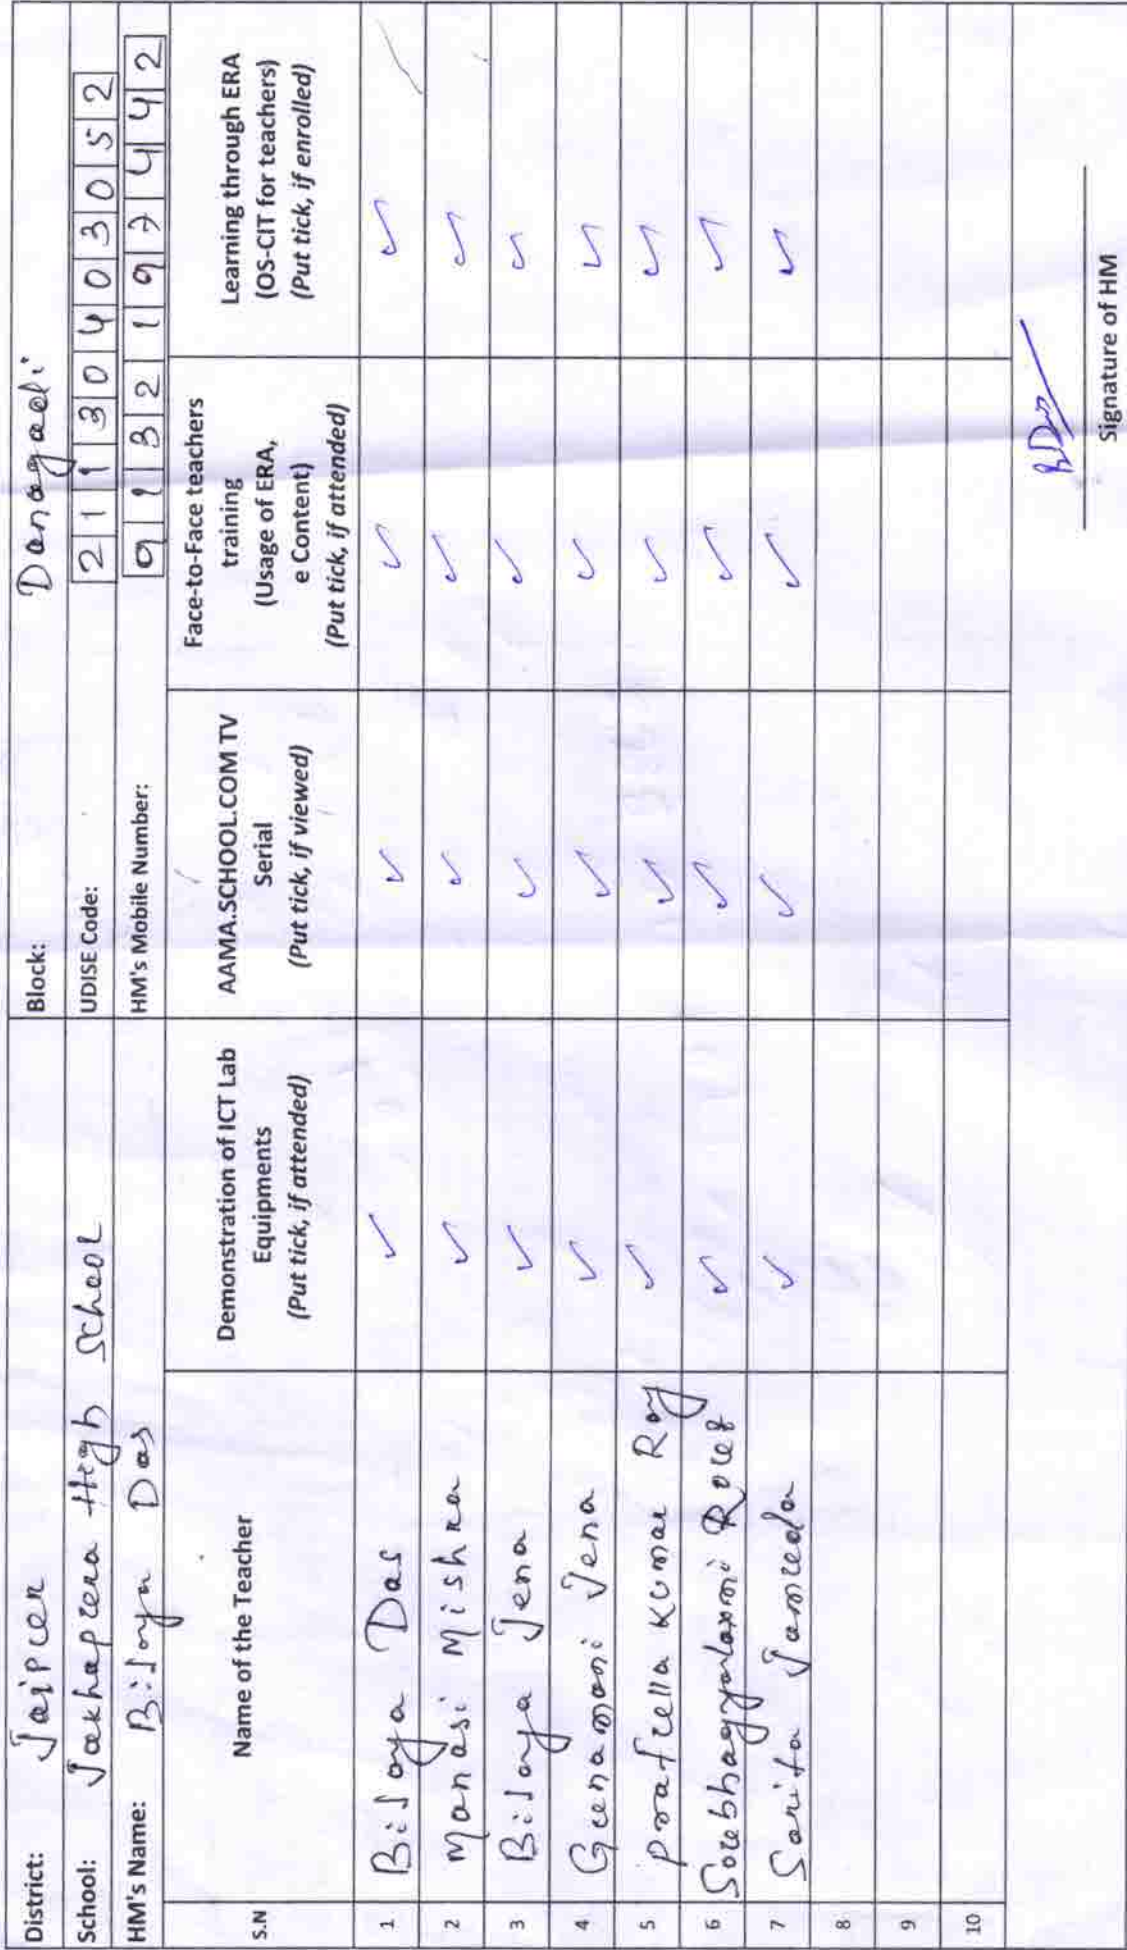 District: Jajpur Block: Danagadi
School: Jakhapura High School UDISE Code: 21130403052
HM's Name: Bijaya Das HM's Mobile Number: 9132197442
S.N Name of the Teacher Demonstration of ICT Lab Equipments (Put tick, if attended) AAMA.SCHOOL.COM TV Serial (Put tick, if viewed) Face-to-Face teachers training (Usage of ERA, e Content) (Put tick, if attended) Learning through ERA (OS-CIT for teachers) (Put tick, if enrolled)
1 Bijaya Das ✓ ✓ ✓ ✓
2 Manasi Mishra ✓ ✓ ✓ ✓
3 Bijaya Jena ✓ ✓ ✓ ✓
4 Gunamani Jena ✓ ✓ ✓ ✓
5 Prafulla Kumar Roy ✓ ✓ ✓ ✓
6 Soubhagyalaxmi Rout ✓ ✓ ✓ ✓
7 Sarita Jamuda ✓ ✓ ✓ ✓
8
9
10
BDas
Signature of HM